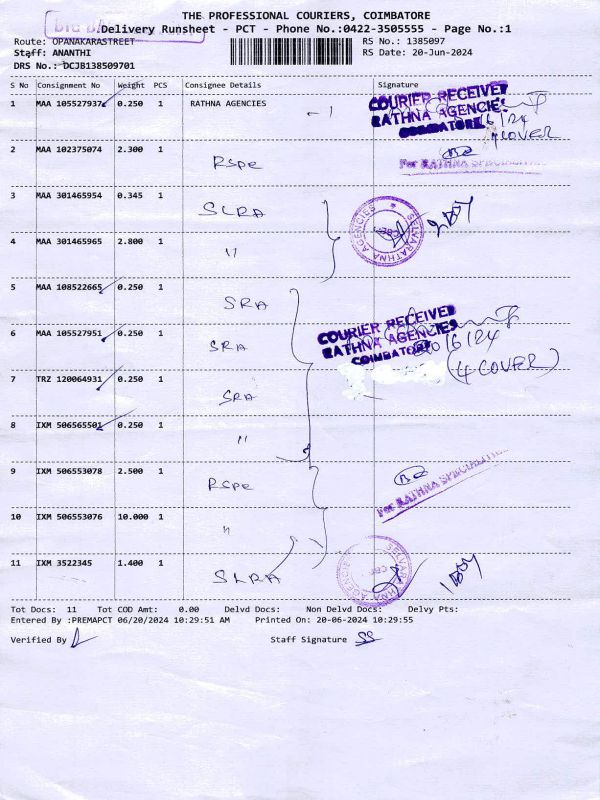 THE PROFESSIONAL COURIERS, COIMBATORE
Delivery Runsheet - PCT - Phone No.:0422-3505555 - Page No.:1
Route: OPANAKARASTREET RS No.: 1385097
Staff: ANANTHI RS Date: 20-Jun-2024
DRS No.: DCJB138509701
S No Consignment No Weight PCS Consignee Details Signature
1 MAA 105527937 0.250 1 RATHNA AGENCIES
COURIER RECEIVED
RATHNA AGENCIES
COIMBATORE
COVER
2 MAA 102375074 2.300 1 RSpe
For RATHNA SPECIALITIE
3 MAA 301465954 0.345 1 SLRA
SELVARATHNA AGENCIES
4 MAA 301465965 2.800 1 "
5 MAA 108522665 0.250 1 SRA
6 MAA 105527951 0.250 1 SRA
COURIER RECEIVED
RATHNA AGENCIES
COIMBATORE
20/6/24
(4 COVER)
7 TRZ 120064931 0.250 1 SRA
8 IXM 506565501 0.250 1 "
9 IXM 506553078 2.500 1 RSpe
For RATHNA SPECIALITIE
10 IXM 506553076 10.000 1 "
11 IXM 3522345 1.400 1 SLRA
SELVARATHNA AGENCIE
Tot Docs: 11 Tot COD Amt: 0.00 Delvd Docs: Non Delvd Docs: Delvy Pts:
Entered By :PREMAPCT 06/20/2024 10:29:51 AM Printed On: 20-06-2024 10:29:55
Verified By Staff Signature